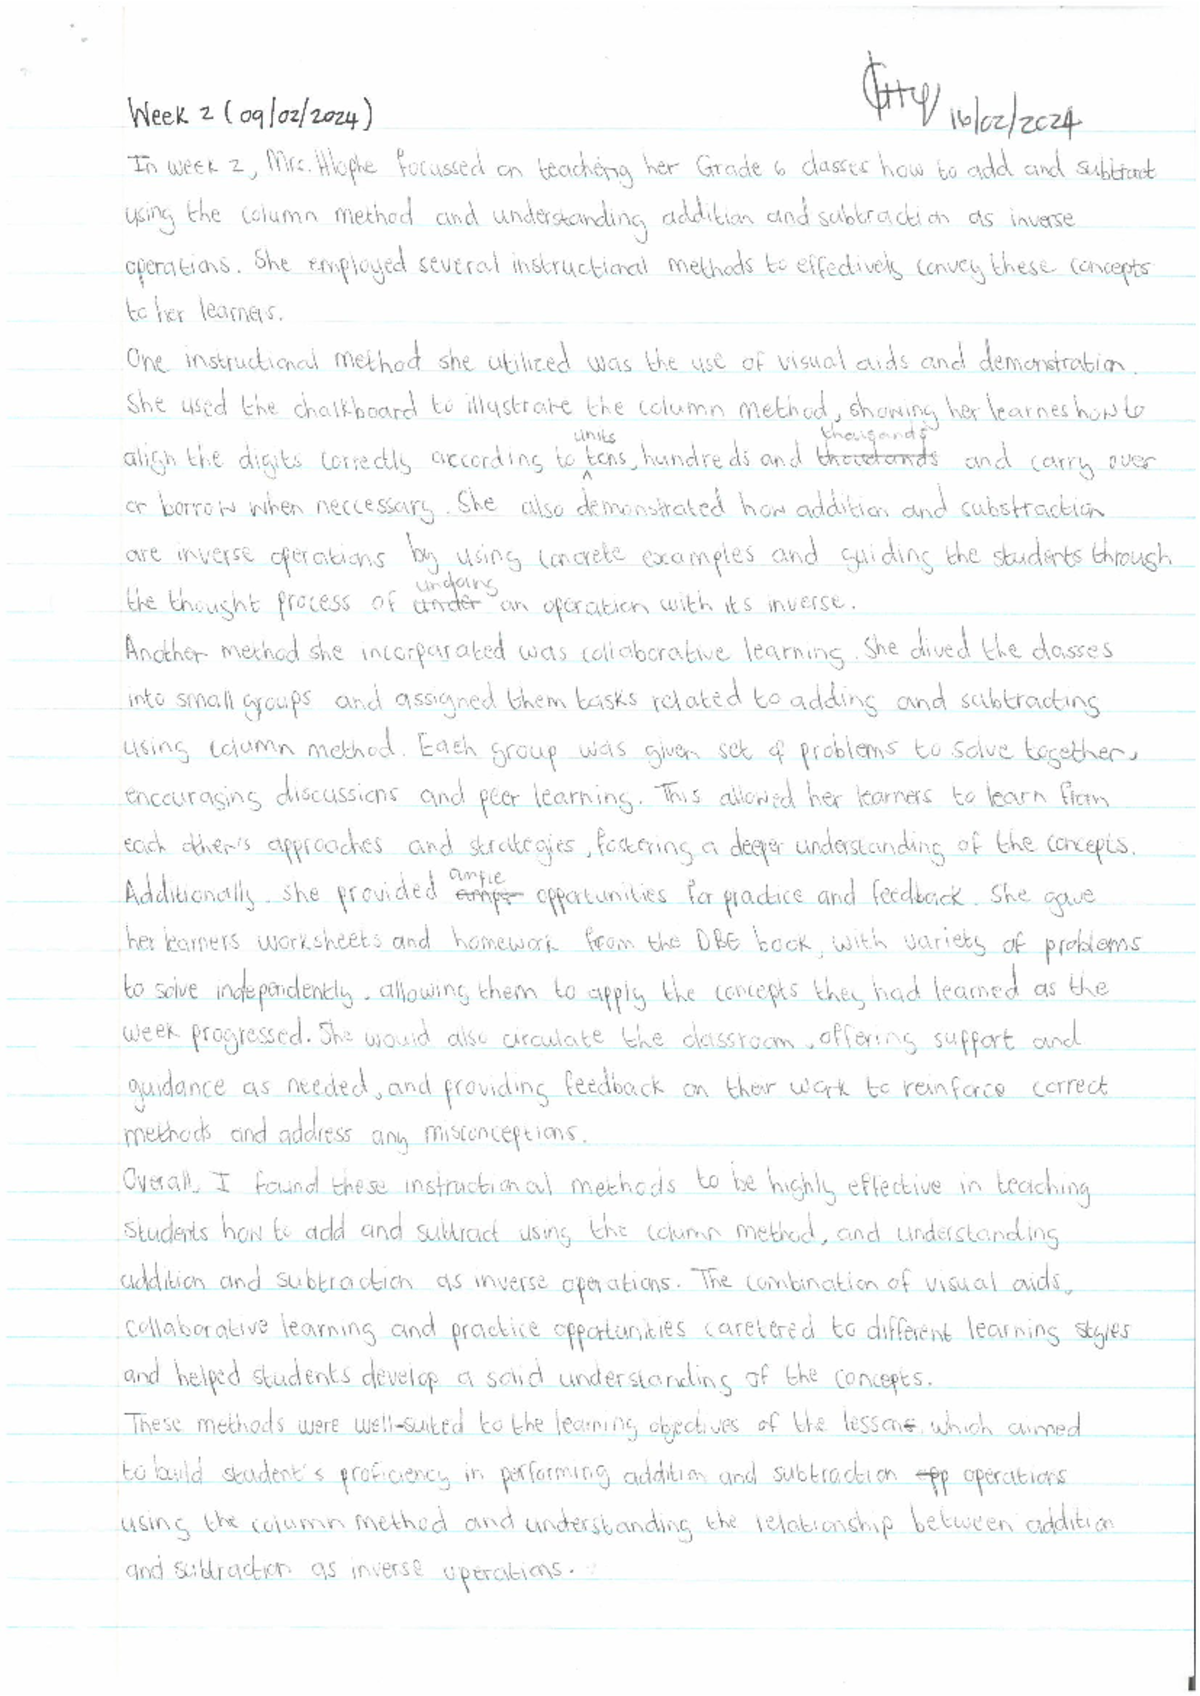 Week 2 (09/02/2024)
16/02/2024
In week 2, Mrs. Hlophe focussed on teaching her Grade 6 classes how to add and subtract
using the column method and understanding addition and subtraction as inverse
operations. She employed several instructional methods to effectively convey these concepts
to her learners.
One instructional method she utilized was the use of visual aids and demonstration.
She used the chalkboard to illustrate the column method, showing her learnes how to
units thousands
align the digits correctly according to tens, hundreds and thoudands and carry over
or borrow when neccessary. She also demonstrated how addition and substraction
are inverse operations by using concrete examples and guiding the students through
undoing
the thought process of under an operation with its inverse.
Another method she incorparated was collaborative learning. She dived the classes
into small groups and assigned them tasks related to adding and subtracting
using column method. Each group was given set of problems to solve together,
encouraging discussions and peer learning. This allowed her learners to learn from
each other's approaches and strategies, fostering a deeper understanding of the concepts.
ample
Additionally, she provided opportunities for practice and feedback. She gave
her learners worksheets and homework from the DBE book, with variety of problems
to solve independently, allowing them to apply the concepts they had learned as the
week progressed. She would also circulate the classroom, offering support and
guidance as needed, and providing feedback on their work to reinforce correct
methods and address any misconceptions.
Overall, I found these instructional methods to be highly effective in teaching
students how to add and subtract using the column method, and understanding
addition and subtraction as inverse operations. The combination of visual aids,
collaborative learning and practice opportunities caretered to different learning styles
and helped students develop a solid understanding of the concepts.
These methods were well-suited to the learning objectives of the lessons, which aimed
to build student's proficiency in performing addition and subtraction opp operations
using the column method and understanding the relationship between addition
and subtraction as inverse operations.